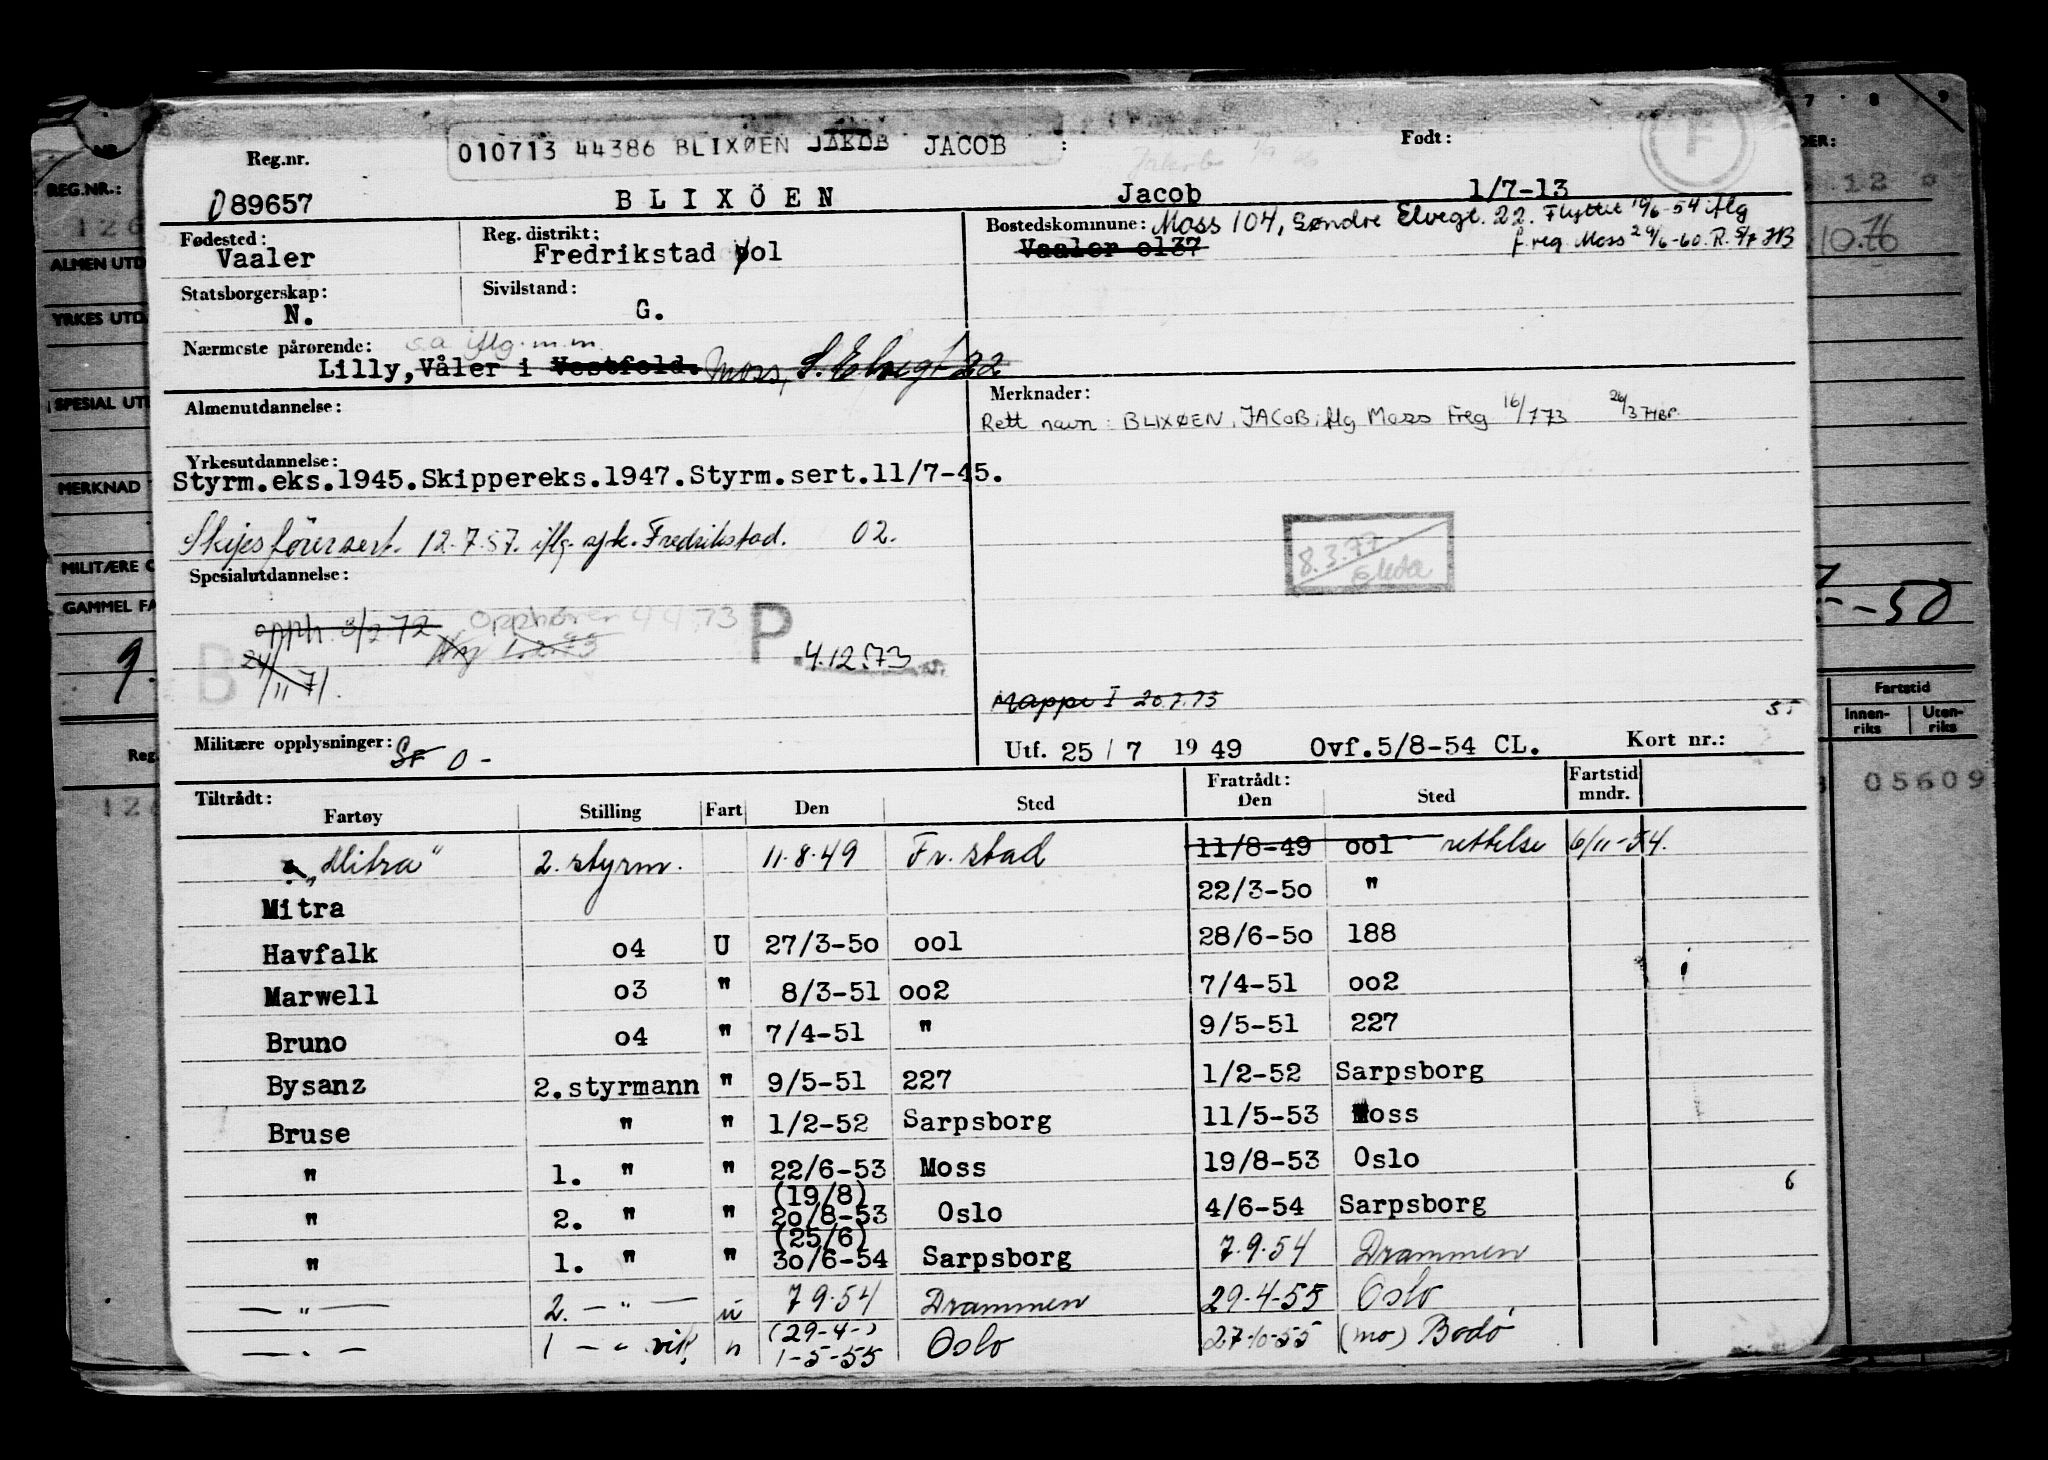 Reg.nr. 010713 44386 BLIXØEN JAKOB JACOB : Født:
089657 BLIXÖEN Jacob 1/7-13
Fødested: Reg. distrikt: Bostedskommune: Moss 104, Søndre Elvegt. 22. Flyttet 10/6-54 iflg
Vaaler Fredrikstad ool Vaaler o137 f.reg. Moss 29/6-60. R. 5/7 HB
Statsborgerskap: Sivilstand:
N. G.
Nærmeste pårørende: s.a. iflg. m.m.
Lilly, Våler i Vestfold. Moss, S. Elvegt 22
Almenutdannelse: Merknader:
Rett navn: BLIXØEN, JACOB iflg Moss Freg 16/1 73
Yrkesutdannelse:
Styrm.eks.1945.Skippereks.1947.Styrm.sert.11/7-45.
Skipsförersert. 12.7.57. iflg. sjk. Fredrikstad. 02.
8.3.77
Spesialutdannelse:
opph. 8/2 72 Opphører 4 4.73 P.
B 24/11 71. Ny 1.2.73 4.12.73
Mappe I 20.7.73
Militære opplysninger: SF O - Utf. 25 / 7 19 49 Ovf.5/8-54 CL. Kort nr.:
Tiltrådt: Fratrådt: Fartstid
Fartøy Stilling Fart Den Sted Den Sted mndr.
"Mitra" 2. styrm. 11.8.49 Fr. stad 11/8-49 ool rettelse 6/11-54.
Mitra 22/3-50 "
Havfalk o4 U 27/3-5o ool 28/6-5o 188
Marwell o3 " 8/3-51 oo2 7/4-51 oo2
Bruno o4 " 7/4-51 " 9/5-51 227
Bysanz 2.styrmann " 9/5-51 227 1/2-52 Sarpsborg
Bruse " " 1/2-52 Sarpsborg 11/5-53 Moss
" 1. " " 22/6-53 Moss 19/8-53 Oslo
(19/8)
" 2. " " 2o/8-53 Oslo 4/6-54 Sarpsborg 6
(25/6)
" 1. " " 3o/6-54 Sarpsborg 7.9.54 Drammen
— " — 2. — " — u 7 9.54 Drammen 29-4-55 Oslo
(29-4-)
— " — 1 — " vik. " 1-5-55 Oslo 27-10-55 (mo) Bodö
REG.NR.:
ALMEN UTD
YRKES UTD.
SPESIAL UT
MERKNAD
MILITÆRE O
GAMMEL FA
9.
Reg.
7 8 9
10.76
-50
Fartstid
Innen-riks Uten-riks
05609